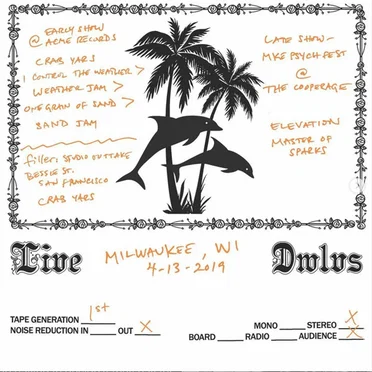 EARLY SHOW
@ ACME RECORDS
CRAB YARS
I CONTROL THE WEATHER >
WEATHER JAM >
ONE GRAIN OF SAND >
SAND JAM
filler: STUDIO OUTTAKE
BESSIE ST.
SAN FRANCISCO
CRAB YARS
LATE SHOW -
MKE PSYCH FEST
@
THE COOPERAGE
ELEVATION
MASTER OF
SPARKS
Live
MILWAUKEE, WI
4-13-2019
Dwlvs
TAPE GENERATION 1st
NOISE REDUCTION IN OUT X
MONO STEREO X
BOARD RADIO AUDIENCE X